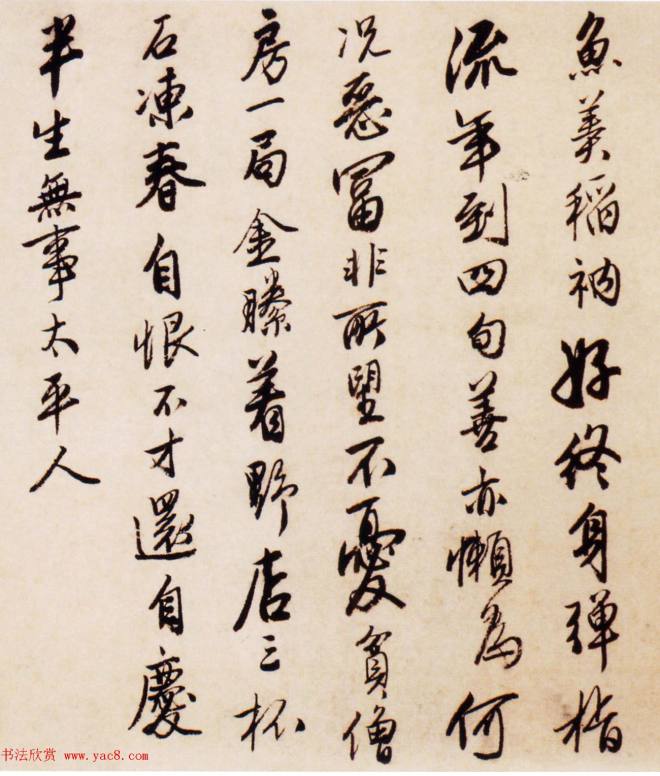 魚羹稻衲好終身彈指
流年到四旬善亦懶為何
况惡冨非所望不憂貧僧
房一局金縢着野店三杯
石凍春自恨不才還自慶
半生無事太平人
书法欣赏 www.yac8.com